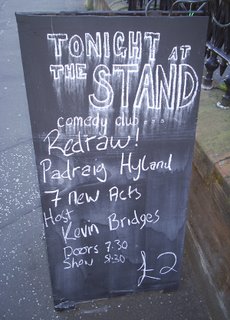 TONIGHT AT
THE STAND
comedy club...
Redraw!
Padraig Hyland
7 new Acts
Host
Kevin Bridges
Doors 7.30
Show 8.30
£2